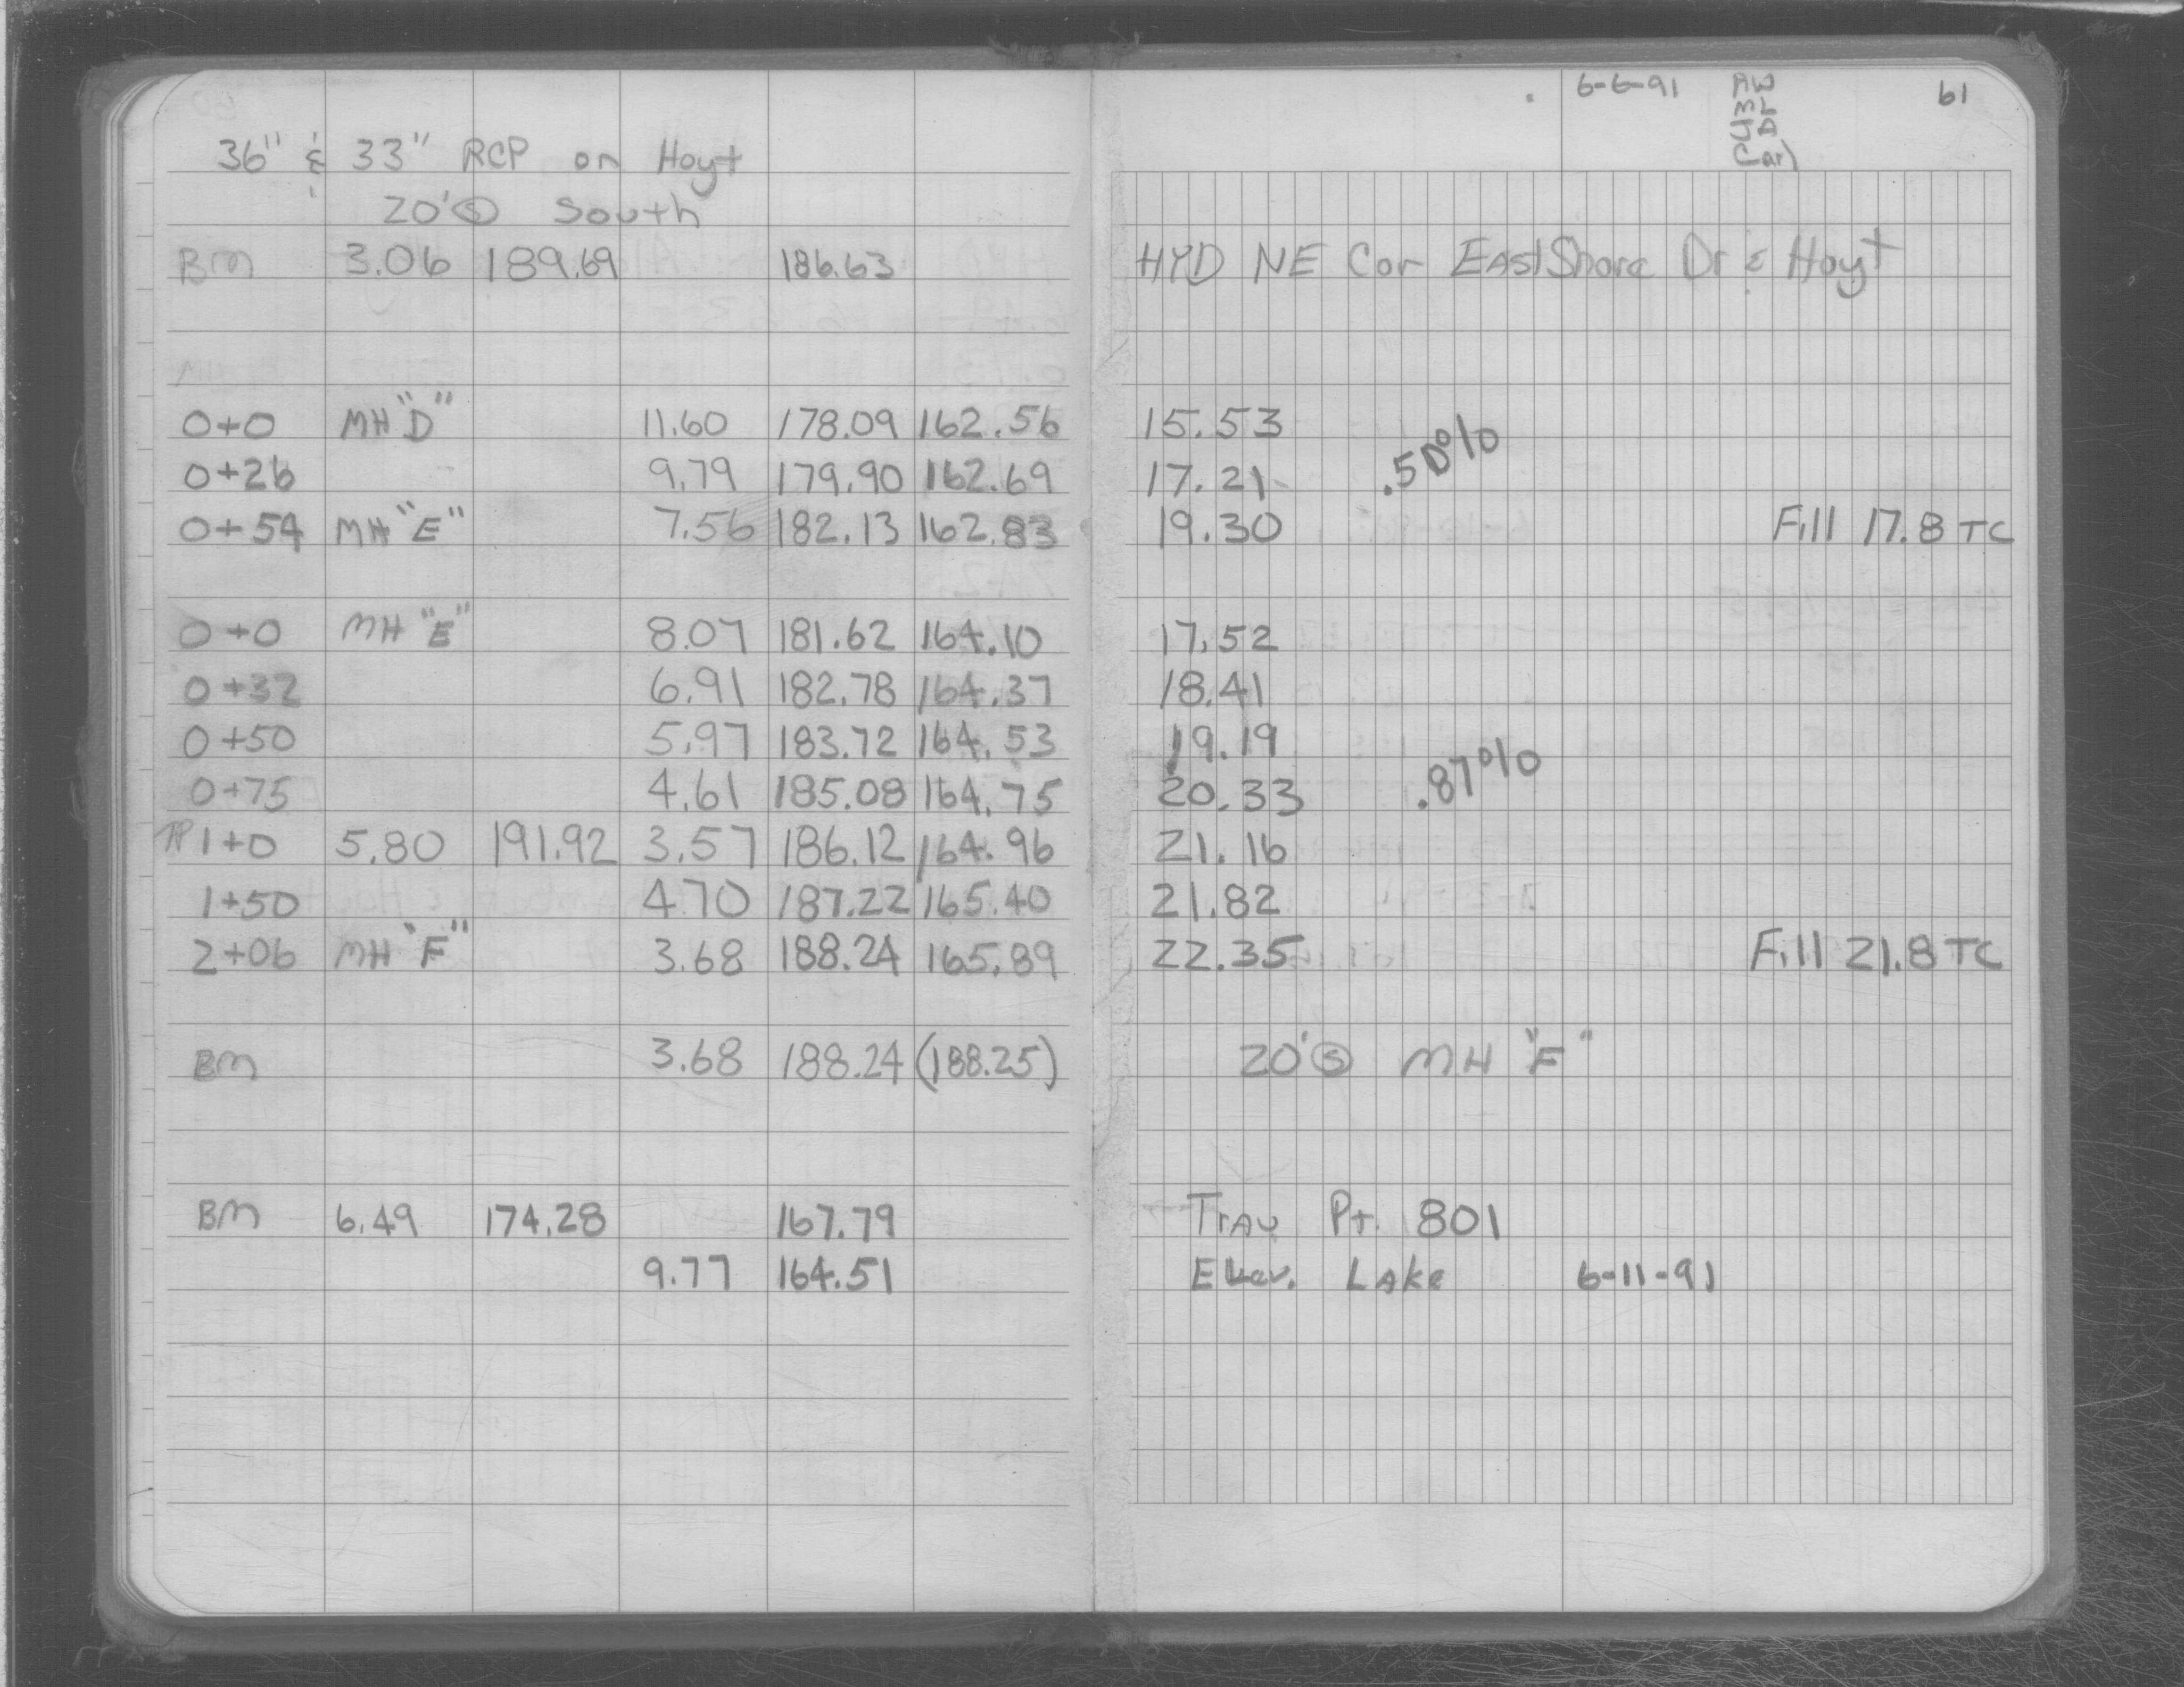 6-6-91 AW 61
ML
JA
Carl
36" & 33" RCP on Hoyt
20' Ⓢ South
BM 3.06 189.69 186.63 HYD NE Cor EastShore Dr & Hoyt
0+0 MH "D" 11.60 178.09 162.56 15.53
.50%
0+26 9.79 179.90 162.69 17.21
0+54 MH "E" 7.56 182.13 162.83 19.30 Fill 17.8 TC
0+0 MH "E" 8.07 181.62 164.10 17.52
0+32 6.91 182.78 164.37 18.41
0+50 5.97 183.72 164.53 19.19
.87%
0+75 4.61 185.08 164.75 20.33
TP 1+0 5.80 191.92 3.57 186.12 164.96 21.16
1+50 4.70 187.22 165.40 21.82
2+06 MH "F" 3.68 188.24 165.89 22.35 Fill 21.8 TC
BM 3.68 188.24 (188.25) 20' Ⓢ MH "F"
BM 6.49 174.28 167.79 Trav Pt. 801
9.77 164.51 Elev. Lake 6-11-91